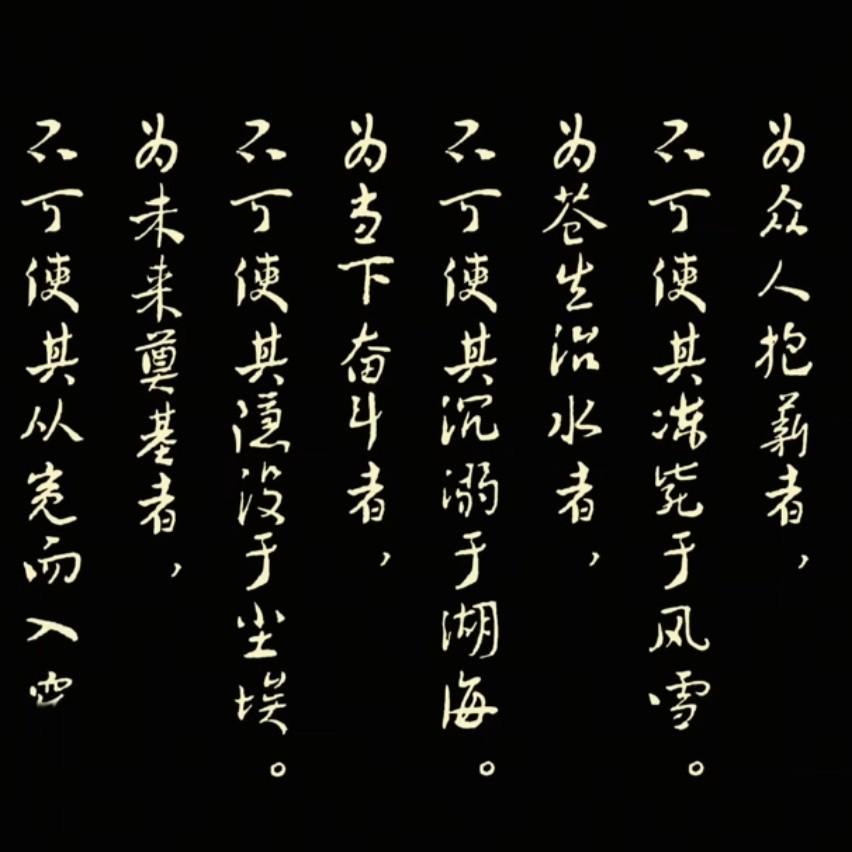 为众人抱薪者，
不可使其冻毙于风雪。
为苍生治水者，
不可使其沉溺于湖海。
为当下奋斗者，
不可使其隐没于尘埃。
为未来奠基者，
不可使其从宽而入